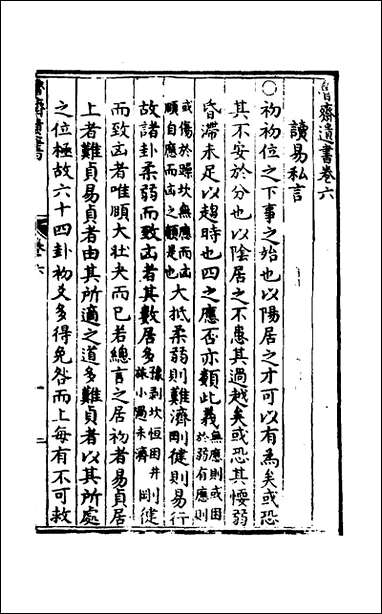 魯齋遺書卷六
讀易私言
○初初位之下事之始也以陽居之才可以有為矣或恐
其不安於分也以陰居之不患其過越矣或恐其懦弱
昏滯未足以趨時也四之應否亦類此義無應則或困
於弱有應則
或傷於躁坎無應而凶
頤自應而凶之類是也大抵柔弱則難濟剛健則易行
故諸卦柔弱而致凶者其數居多豫剝坎恒困井
旅小過未濟剛健
而致凶者唯頤大壯夬而已若總言之居初者易貞居
上者難貞易貞者由其所適之道多難貞者以其所處
之位極故六十四卦初爻多得免咎而上每有不可救